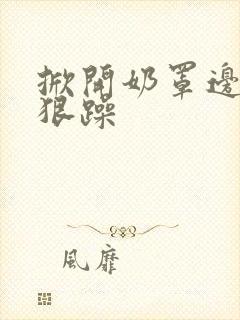 掀開奶罩邊
狠躁
風靡